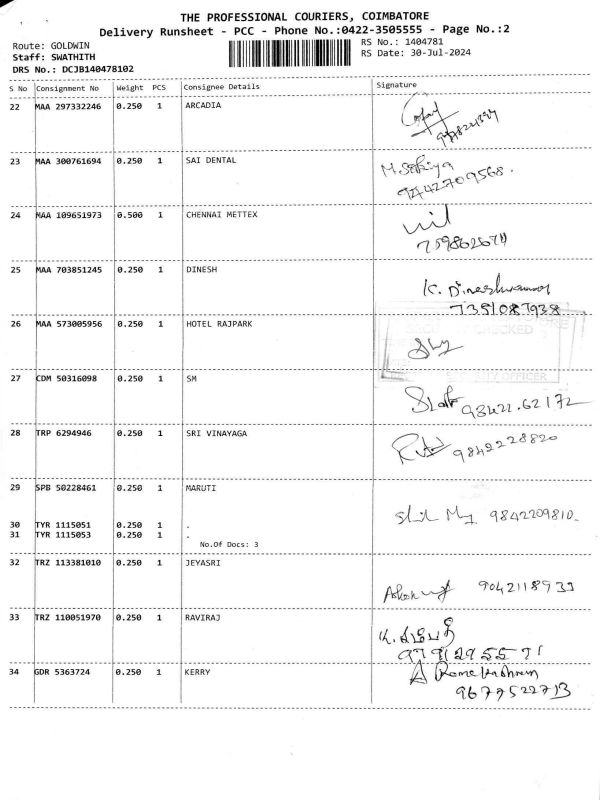 THE PROFESSIONAL COURIERS, COIMBATORE
Delivery Runsheet - PCC - Phone No.:0422-3505555 - Page No.:2
Route: GOLDWIN
RS No.: 1404781
Staff: SWATHITH
RS Date: 30-Jul-2024
DRS No.: DCJB140478102
S No Consignment No Weight PCS Consignee Details Signature
22 MAA 297332246 0.250 1 ARCADIA
23 MAA 300761694 0.250 1 SAI DENTAL
9442709568.
24 MAA 109651973 0.500 1 CHENNAI METTEX
25 MAA 703851245 0.250 1 DINESH
K.
7351087938
26 MAA 573005956 0.250 1 HOTEL RAJPARK
CHECKED
OFFICER
27 CDM 50316098 0.250 1 SM
93422.62172
28 TRP 6294946 0.250 1 SRI VINAYAGA
9842228820
29 SPB 50228461 0.250 1 MARUTI
9842209810.
30 TYR 1115051 0.250 1 .
31 TYR 1115053 0.250 1 .
No.Of Docs: 3
32 TRZ 113381010 0.250 1 JEYASRI
33 TRZ 110051970 0.250 1 RAVIRAJ
34 GDR 5363724 0.250 1 KERRY
9677522713